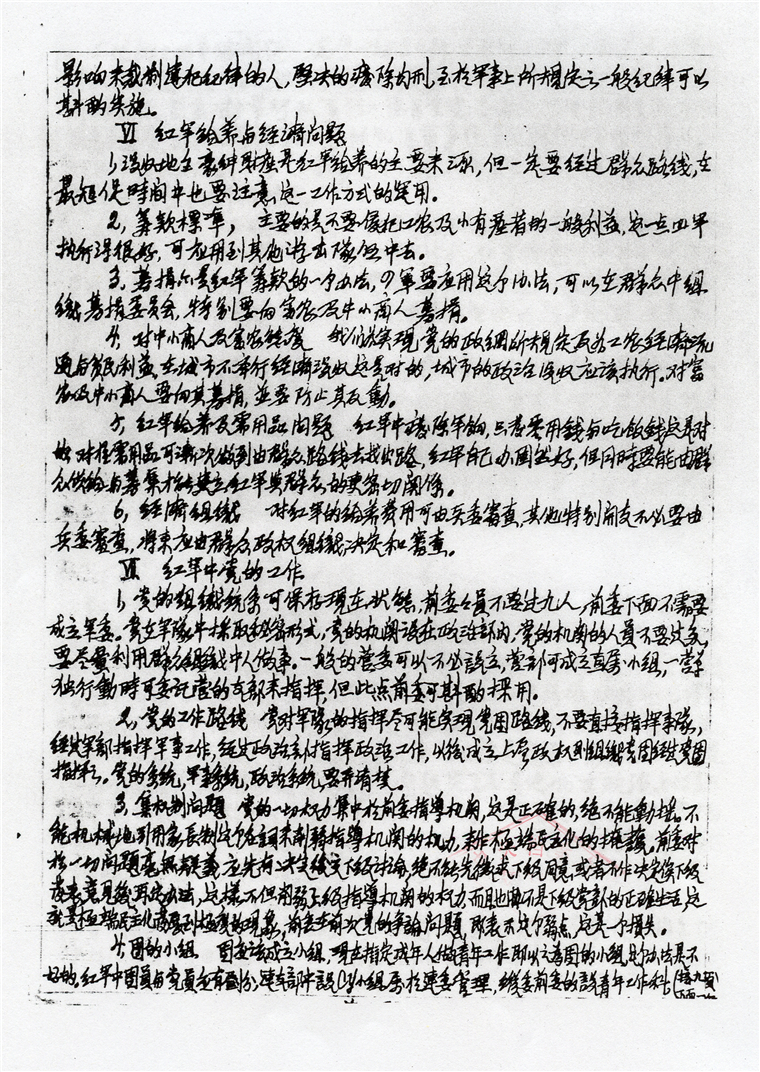 影响来裁制违犯纪律的人,坚决的废除肉刑,至于军事上所规定之一般纪律可以
斟酌实施。
Ⅵ 红军给养与经济问题
1,没收地主豪绅财产是红军给养的主要来源,但一定要经过群众路线,在
最短促时间中也要注意这一工作方式的运用。
2,筹款标准,主要的是不要侵犯工农及小有产者的一般利益,这一点四军
执行得很好,可应用到其他游击队伍中去。
3,募捐亦是红军筹款的一个办法,四军要应用这个办法,可以在群众中组
织募捐委员会,特别要向富农及中小商人募捐。
4,对中小商人及富农态度 我们为实现党的政纲所规定及为工农经济流
通与贫民利益,在城市不举行经济没收这是对的,城市的政治没收应该执行。对富
农及中小商人要向其募捐,並要防止其反動。
5,红军给养及需用品问题 红军中废除军饷,只发零用錢与吃饭錢这是对
的,对於需用品可渐次做到由群众路线去找出路,红军自己办固然好,但同時要能由群
众供给与募集才能建立红军與群众的更密切関係。
6,经濟组織 对红军的给养费用可由兵委審查,其他特别開支不必要由
兵委審查,将来应由群众政权组織決定和審查。
Ⅶ 红军中党的工作
1,党的组織系统可保存現在状態,前委委員不要过九人,前委下面不需要
成立军委。党在军队中採取秘密形式,党的机関設在政治部內,党的机関的人員不要过多,
要尽量利用群众组織中人做事。一般的营委可以不必設立,营部可成立直屬小组,一营單
独行動時可委託营的支部来指挥,但此点前委可斟酌採用。
2,党的工作路线 党对军隊的指挥尽可能实现党團路线,不要直接指挥军隊,
经过军部指挥军事工作,经过政治部指挥政治工作,以後成立上层政权則组織党團经过党團
指挥之。党的系统,军事系统,政治系统,要弄清楚。
3,集权制问题 党的一切权力集中於前委指導机関,这是正確的,绝不能動搖。不
能机械地引用家長制这个名詞来削弱指導机関的权力,来作極端民主化的掩護。前委对
於一切问题毫無疑義应先有決定後交下级討論,绝不能先徵求下级同意或者不作決定俟下级
发表意見後再定办法,这樣不但削弱上级指導机関的权力,而且也不是下级党部的正確生活,这
就是極端民主化發展到極度的現象,前委在前次党的争論问題,即表示这个弱点,这是一个損失。
4,團的小组 團应該成立小组,現在指定成年人做青年工作即以之為團的小组是个办法是不
好的,红军中團員与党員应有劃分,連支部中設CY小组屬於連委管理,纵委前委的設青年工作科